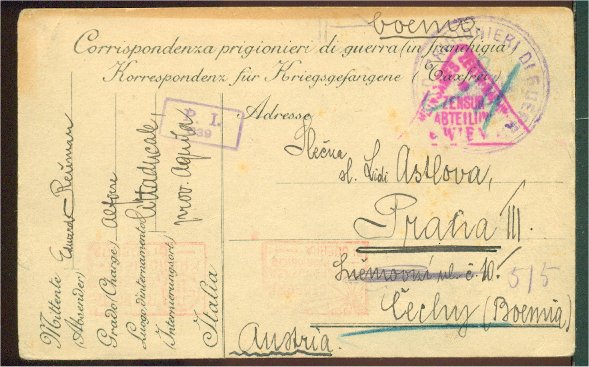 boemo
Corrispondenza prigionieri di guerra (in franchigia
Korrespondenz für Kriegsgefangene (Taxfrei)
PRIGIONIERI DI GUERRA
ZENSUR
ABTEILUNG
WIEN
P. I.
39
Mittente Eduard Reisman
(Absender)
Grado (Charge) Alfiere
Luogo d'internamento Cittaducale
(Internierungsort) prov. Aquila
Italia
Adresse
Slečna
sl. Lidi Astlova,
Praha III.
Sněmovní ul. č. 10.
515
Čechy (Boemia)
Austria.